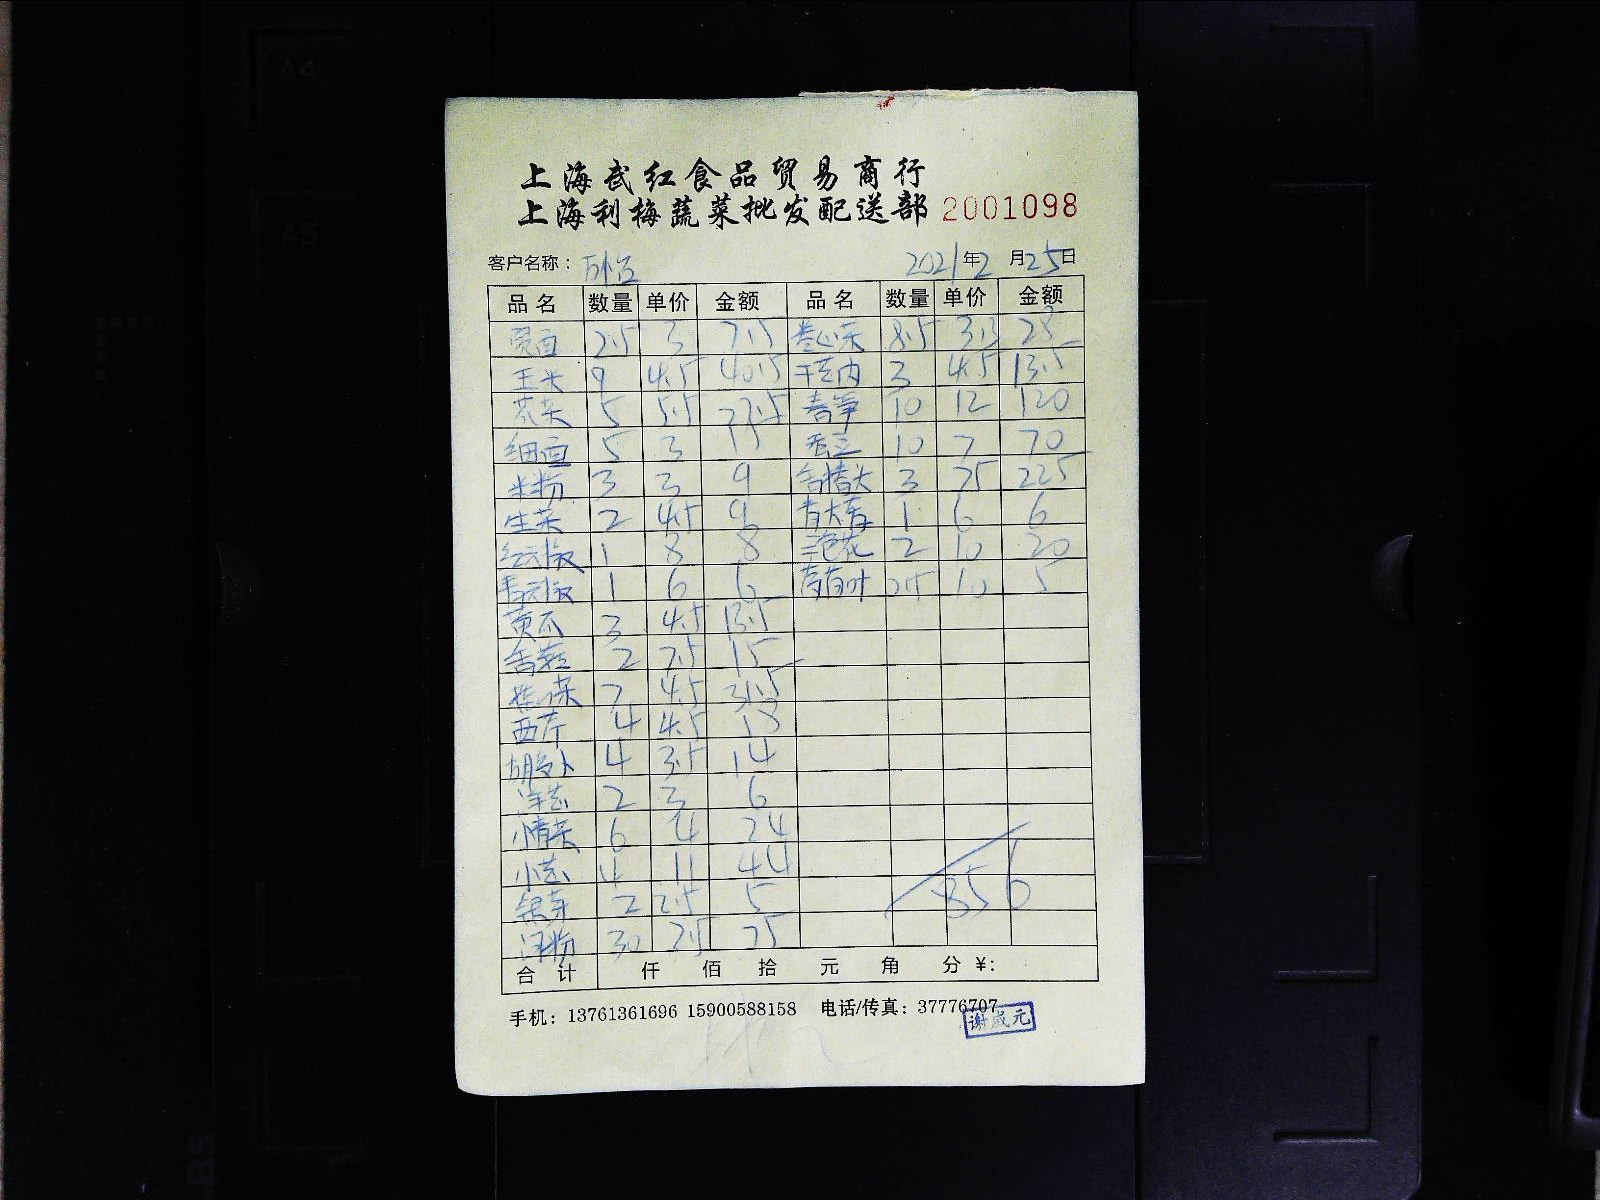 上海武红食品贸易商行
上海利梅蔬菜批发配送部 2001098
客户名称： 2021年2月25日
品名 数量 单价 金额 品名 数量 单价 金额
宽面 2.5 3 7.5 卷心菜 8.5 3.3 28
玉米 9 4.5 40.5 3 4.5 13.5
5 5.5 27.5 春笋 10 12 120
细面 5 3 15 10 7 70
米粉 3 3 9 3 75 225
生菜 2 4.5 9 1 6 6
红元椒 1 8 8 三色花 2 10 20
青元椒 1 6 6 10 5
黄瓜 3 4.5 13.5
香菇 2 7.5 15
7 4.5 31.5
西芹 4 4.5 18
胡萝卜 4 3.5 14
洋葱 2 3 6
小青菜 6 4 24
小葱 4 11 44
银芽 2 2.5 5
河粉 30 2.5 75
856
合计 仟 佰 拾 元 角 分 ¥:
手机：13761361696 15900588158 电话/传真：37776707
谢成元